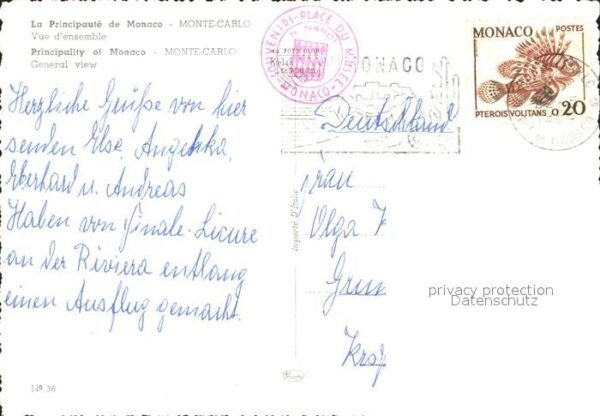 La Principauté de Monaco - MONTE-CARLO
Vue d'ensemble
Principality of Monaco - MONTE-CARLO
General view
Herzliche Grüße von hier
senden Else, Angelika,
Eberhard u. Andreas
Haben von Finale-Ligure
an der Riviera entlang
einen Ausflug gemacht.
Nº 36
SOUVENIRS-PLACE DU MUSÉE
MONACO
MONACO
MONACO POSTES
PTEROIS VOLITANS 0,20
Deutschland
Frau
Olga
Grun
Imprimé D'Italie
privacy protection
Datenschutz